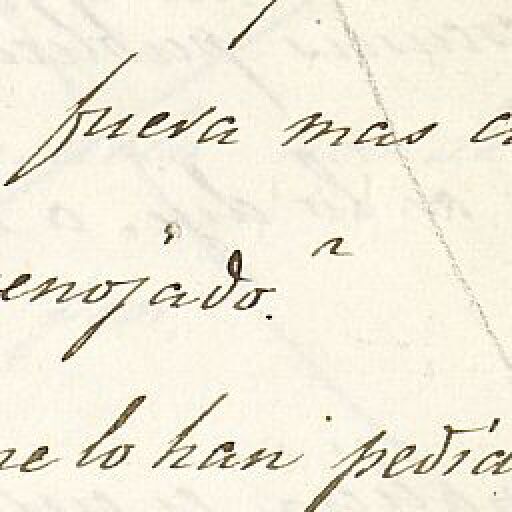 fuera mas
enojado.
lo han pedia